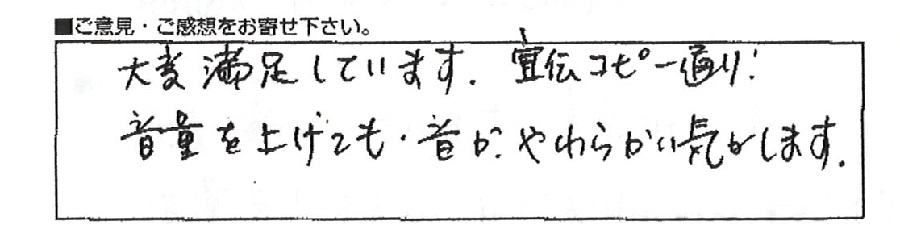 ■ご意見・ご感想をお寄せ下さい。
大変満足しています. 宣伝コピー通り!
音量を上げても・音が、やわらかい気がします.